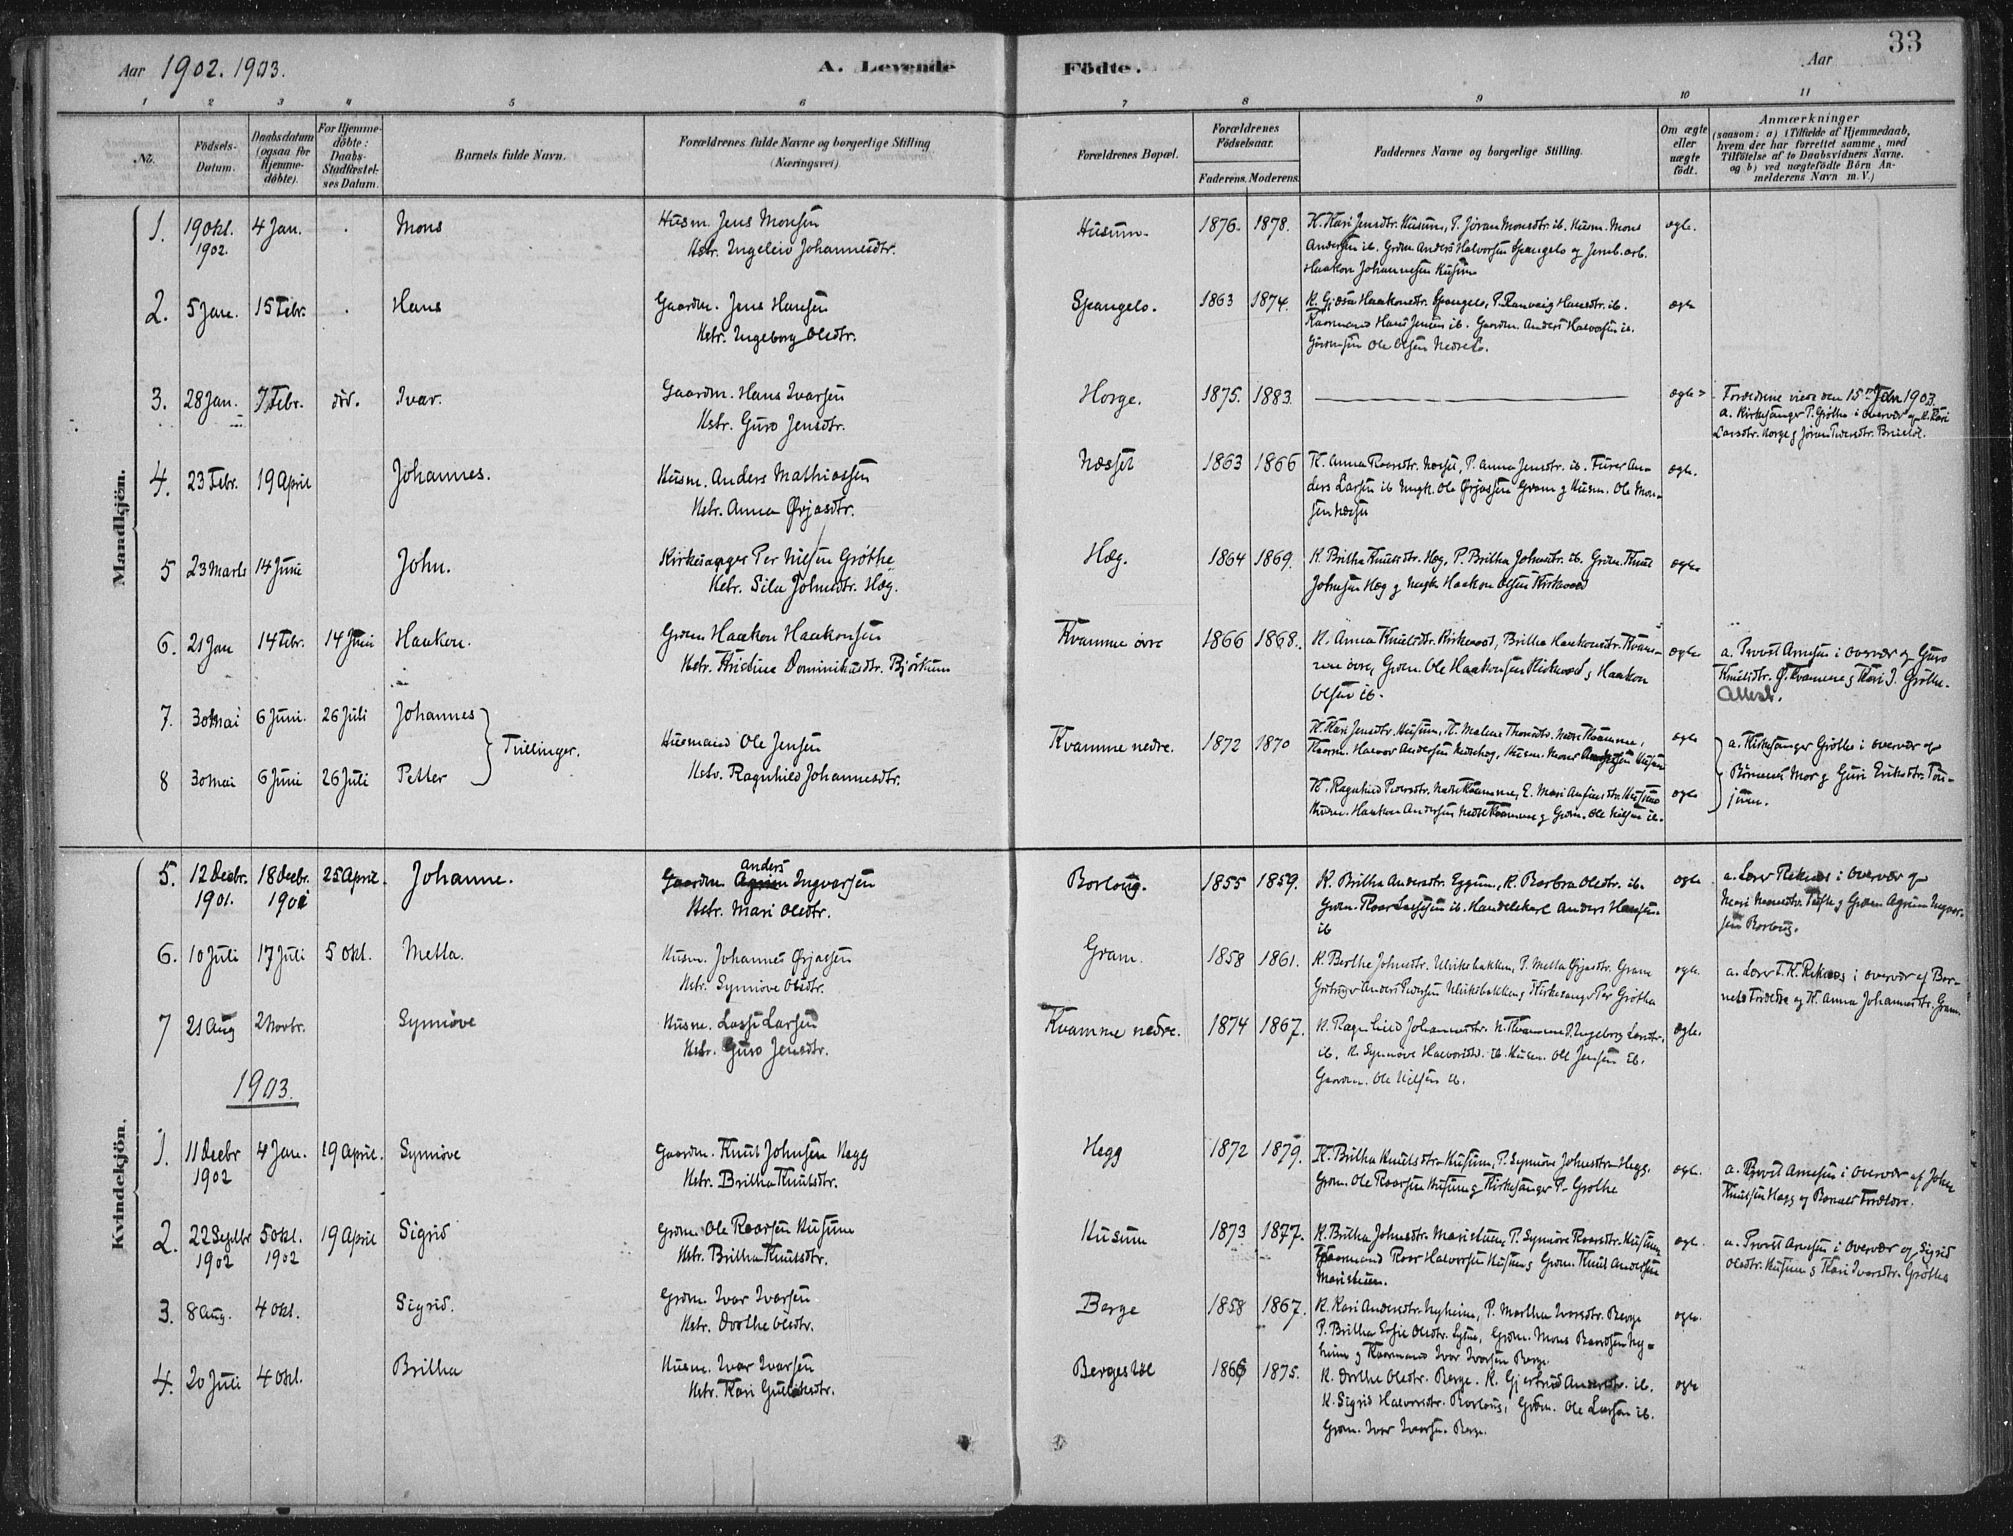 Aar 1902. 1903.
A. Levende
Födte.
Aar
33
1 2 3 4 5 6 7 8 9 10 11
No.
Födsels-
Datum.
Daabsdatum
(ogsaa for
Hjemme-
döbte).
For Hjemme-
döbte:
Daabs-
Stadfæstel-
ses Datum.
Barnets fulde Navn.
Forældrenes fulde Navne og borgerlige Stilling
(Næringsvei)
Forældrenes Bopæl.
Forældrenes
Födselsaar.
Faderens. Moderens.
Faddernes Navne og borgerlige Stilling.
Om ægte
eller
uægte
födt.
Anmærkninger
(saasom: a) i Tilfælde af Hjemmedaab,
hvem der har forrettet samme, med
Tilföielse af to Daabsvidners Navne.
og b) ved uægtefödte Börn An-
melderens Navn m. V.)
Mandkjön.
1. 19 Okt. 1902. 4 Jan. Mons
Husm. Jens Monsen
Hstr. Ingeleiv Johannesdtr.
Husum. 1876. 1878.
K. Kari Jensdtr. Husum, P. Jöran Monsdtr. ib. Husm. Mons
Andersen ib. Grdm. Anders Halvorsen Spangelo og Jernb. arb.
Haakon Johannesen Husum
ægte.
2. 5 Jan. 15 Febr. Hans
Gaardm. Jens Hansen
Hstr. Ingeborg Olsdtr.
Spangelo. 1863 1874.
K. Gjøa Haakonsdtr. Spangelo, P. Ranveig Hansdtr. ib.
Kaarmand Hans Jensen ib. Gaardm. Anders Halvorsen ib.
Ole Olsen
ægte
3. 28 Jan. 7 Febr. död. Ivar.
Gaardm. Hans Ivarsen
Hstr. Guro Jensdtr.
Horge. 1875. 1883.
ægte
Forældrene viede den 15 Jan 1903.
a. Kirkesanger P. Gröthe i overvær af K. Kari
Larsdtr. Horge
4. 23 Febr. 19 April Johannes.
Husm. Anders Mathiassen
Hstr. Anna Ørjasdtr.
Næsset 1863 1866
K. Anna Roarsdtr. Næsset, P. Anna Jensdtr. ib. Furer An-
ders Larsen ib Ungk. Ole Ørjassen Gram og Husm. Ole Mon-
sen Næsset
ægte.
5 23 Marts 14 Juni John.
Kirkesanger Per Nilsen Gröthe
Hstr. Sile Johnsdtr. Hæg.
Hæg. 1864 1869.
K. Britha Knutsdtr. Hæg, P. Britha Johnsdtr. ib. Grdm. Knut
Johnsen Hæg og Ungk. Haakon Olsen Kirkevold
ægte
6. 21 Jan 14 Febr. 14 Juni Haakon.
Grdm Haakon Haakonsen
Hstr. Kristine Dominikusdtr. Bjørkum
Kvamme övre 1866 1868.
K. Anna Knutsdtr. Kirkevold, Britha Haakonsdtr. Kvam-
me övre, Grdm. Ole Haakonsen Kirkevold og Haakon
Olsen ib.
ægte
a. Provst Arnesen i overvær af Guro
Knutsdtr. Ø. Kvamme og Kari I. Gröthe.
7. 30 Mai 6 Juni. 26 Juli Johannes
Tvillinger.
Husmand Ole Jensen
Hstr. Ragnhild Johannesdtr.
Kvamme nedre. 1872 1870
K. Kari Jensdtr. Husum, K. Malene Thomasdtr. Nedre Kvamme,
ægte
8 30 Mai 6 Juni 26 Juli Petter
K. Ragnhild Pedersdtr. Nedre Kvamme,
Haakon Andersen Nedre Kvamme og Grdm. Ole Nilsen ib.
ægte
a. Kirkesanger Gröthe i overvær af
Børnenes Mor og Guri Eriksdtr. Tön-
jum.
Kvindekjön.
5. 12 Decbr. 1901. 18 Decbr. 1901 25 April. Johanne.
Gaardm. Anders Ingvarsen
Hstr. Mari Olsdtr.
Borlaug. 1855 1859.
K. Britha Andersdtr. Eggum, K. Barbra Olsdtr. ib.
Grdm. Roar Lassesen ib. Handelskarl Anders Hansen
ib
ægte
a. Lærer Reknes i overvær af
Mari Monsdtr. og Grdm Agrim Ingvar-
sen Borlaug.
6. 10 Juli 17 Juli 5 Okt. Metta.
Husm. Johannes Ørjassen
Hstr. Synnöve Olsdtr.
Gram. 1858 1861.
K. Berthe Johnsdtr. Ulviksbakken, P. Metta Ørjasdtr. Gram
Anders Pedersen Ulviksbakken og Kirkesang. Per Gröthe
ægte.
a. Lærer T. K. Reknes i overvær af Bar-
nets Forældre og K. Anna Johannesdtr. Gram.
7 21 Aug 2 Novbr. Synnöve
Husm. Lasse Larsen
Hstr. Guro Jensdtr.
Kvamme nedre. 1874 1867.
K. Ragnhild Johannesdtr. N. Kvamme, P. Ingeborg Larsdtr.
ib. K. Synnöve Halvorsdtr. ib. Husm. Ole Jensen ib.
Gaardm. Ole Nilsen ib.
ægte.
1903.
1. 11 Decbr 1902 4 Jan. 19 April. Synnöve
Gaardm. Knut Johnsen Hegg
Hstr. Britha Knutsdtr.
Hegg 1872 1879.
K. Britha Knutsdtr. Husum, P. Synnöve Johnsdtr. Hegg.
Grdm. Ole Roarsen Husum og Kirkesanger P. Gröthe
ægte.
a. Provst Arnesen i overvær af John
Knutsen Hegg og Barnets Forældre.
2. 22 Septbr 1902 5 Okt. 1902 19 April Sigrid
Grdm. Ole Roarsen Husum
Hstr. Britha Knutsdtr.
Husum 1873 1877.
K. Britha Johnsdtr. Maristuen, P. Synnöve Roarsdtr. Husum
Kaarmand Roar Halvorsen Husum og Grdm. Knut Andersen
Maristuen.
ægte.
a. Provst Arnesen i overvær af Sigrid
Olsdtr. Husum og Kari Ivarsdtr. Gröthe
3. 8 Aug. 4 Okt. Sigrid.
Grdm. Ivar Ivarsen
Hstr. Dorthe Olsdtr.
Berge 1858 1867.
K. Kari Andersdtr. Nyheim, P. Martha Ivarsdtr. Berge
P. Britha Sofie Olsdtr. Grdm. Mons Baardsen Ny-
heim og Kaarmand Ivar Ivarsen Berge.
ægte.
4. 20 Juli 4 Okt. Britha
Husm. Ivar Ivarsen
Hstr. Kari Gulliksdtr.
Bergestöl 1866 1875.
K. Dorthe Olsdtr. Berge. K. Gjertrud Andersdtr. ib.
K. Sigrid Halvorsdtr. Borlaug, Grdm. Ole Larsen ib.
Grdm. Ivar Ivarsen. Berge.
ægte